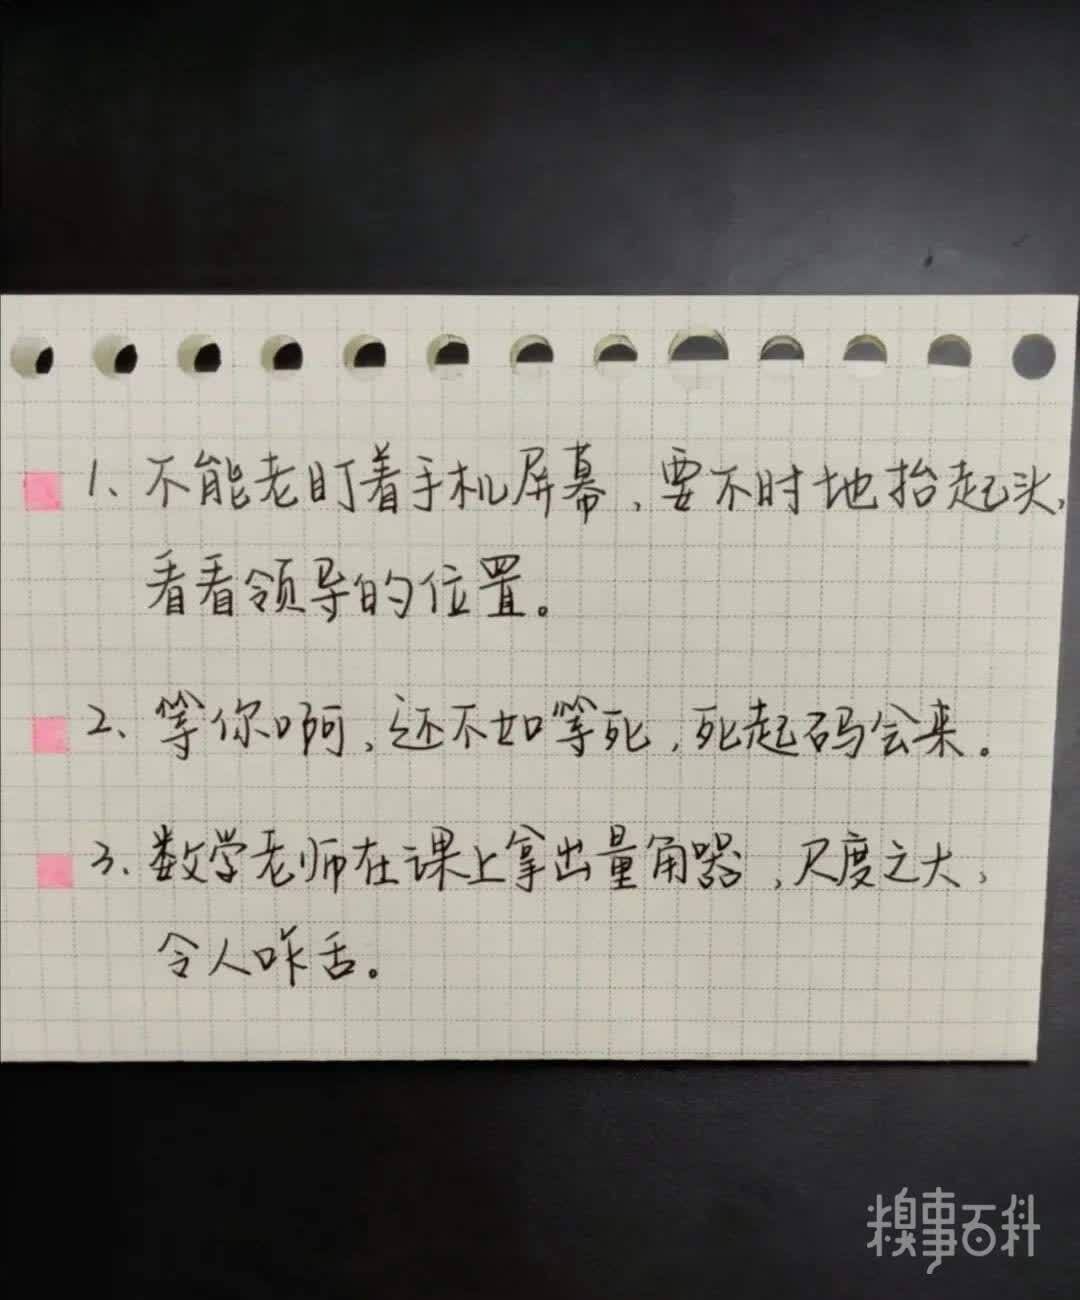 1、不能老盯着手机屏幕，要不时地抬起头，
看看领导的位置。
2、等你啊，还不如等死，死起码会来。
3、数学老师在课上拿出量角器，尺度之大，
令人咋舌。
糗事百科